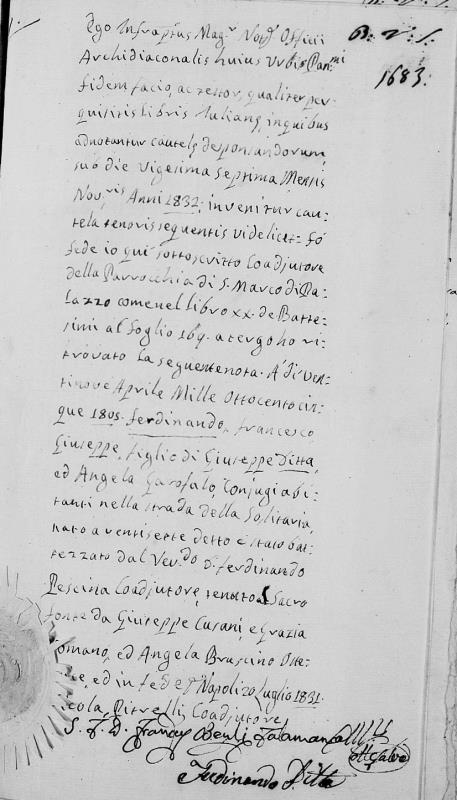 Ego Infraptus Magr Notus Officii
Archidiaconalis huius Urbis Panmi
fidem facio, ac testor, qualiter per-
quisitis libris Iulianę, in quibus
adnotantur cautelę desponsandorum,
sub die vigesima septima Mensis
Novris Anni 1832: invenitur cau-
tela tenoris sequentis videlicet: Fó
fede io quí sottoscritto Coadjutore
della Parrocchia di S. Marco di Pa-
lazzo come nel libro xx. de Batte-
simi al foglio 169. a tergo ho ri-
trovato la seguente nota. A' dí ven-
tinove Aprile Mille Ottocento cin-
que 1805. Ferdinando, Francesco,
Giuseppe, figlio di Giuseppe Ditta,
ed Angela Garofalo, Conjugi abi-
tanti nella strada della Solitaria,
nato a ventisette detto è stato bat-
tezzato dal Vev.do D. Ferdinando
Pescina Coadjutore, tenuto al Sacro
fonte da Giuseppe Cusani, e Grazia
Romano, ed Angela Bruscino Oste-
ed in fede Napoli 20 luglio 1831.
Nicola Pitrelli Coadjutore
S. T. D. Talamanca
Ferdinando Ditta
1683.